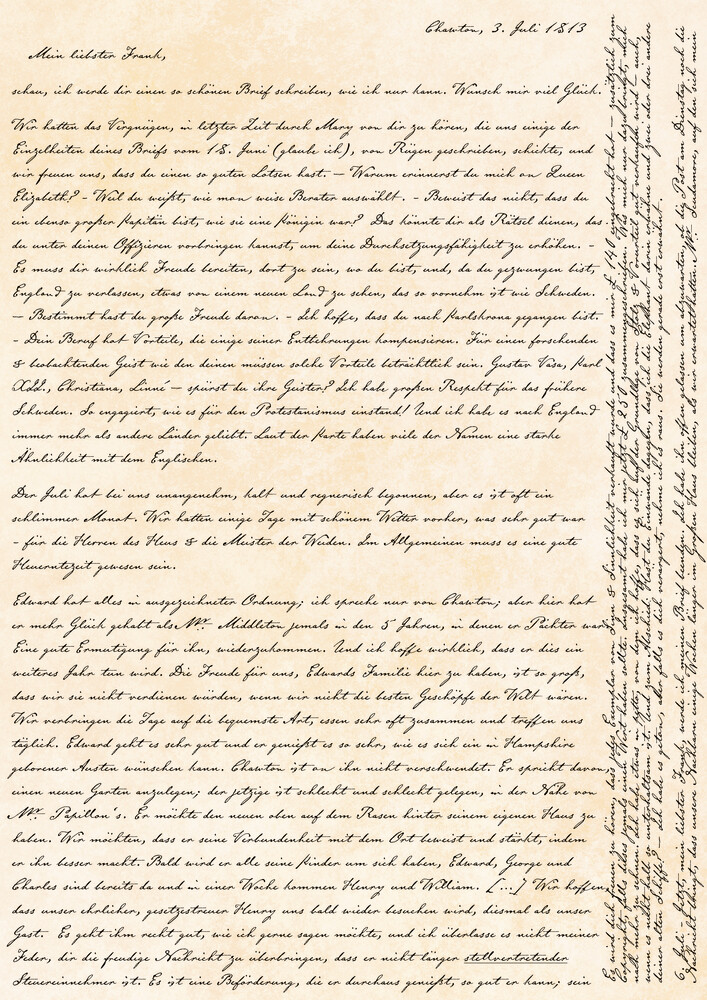 Chawton, 3. Juli 1813
Mein liebster Frank,
schau, ich werde dir einen so schönen Brief schreiben, wie ich nur kann. Wünsch mir viel Glück.
Wir hatten das Vergnügen, in letzter Zeit durch Mary von dir zu hören, die uns einige der
Einzelheiten deines Briefs vom 18. Juni (glaube ich), von Rügen geschrieben, schickte, und
wir freuen uns, dass du einen so guten Lotsen hast. — Warum erinnerst du mich an Queen
Elizabeth? - Weil du weißt, wie man weise Berater auswählt. - Beweist das nicht, dass du
ein ebenso großer Kapitän bist, wie sie eine Königin war? Das könnte dir als Rätsel dienen, das
du unter deinen Offizieren vorbringen kannst, um deine Durchsetzungsfähigkeit zu erhöhen. -
Es muss dir wirklich Freude bereiten, dort zu sein, wo du bist, und, da du gezwungen bist,
England zu verlassen, etwas von einem neuen Land zu sehen, das so vornehm ist wie Schweden.
— Bestimmt hast du große Freude daran. - Ich hoffe, dass du nach Karlskrona gegangen bist.
- Dein Beruf hat Vorteile, die einige seiner Entbehrungen kompensieren. Für einen forschenden
& beobachtenden Geist wie den deinen müssen solche Vorteile beträchtlich sein. Gustav Vasa, Karl
XII., Christiana, Linné — spürst du ihre Geister? Ich habe großen Respekt für das frühere
Schweden. So engagiert, wie es für den Protestanismus einstand! Und ich habe es nach England
immer mehr als andere Länder geliebt. Laut der Karte haben viele der Namen eine starke
Ähnlichkeit mit dem Englischen.
Der Juli hat bei uns unangenehm, kalt und regnerisch begonnen, aber es ist oft ein
schlimmer Monat. Wir hatten einige Tage mit schönem Wetter vorher, was sehr gut war
- für die Herren des Heus & die Meister der Weiden. Im Allgemeinen muss es eine gute
Heuerntezeit gewesen sein.
Edward hat alles in ausgezeichneter Ordnung; ich spreche nur von Chawton; aber hier hat
er mehr Glück gehabt als Mr. Middleton jemals in den 5 Jahren, in denen er Pächter war.
Eine gute Ermutigung für ihn, wiederzukommen. Und ich hoffe wirklich, dass er dies ein
weiteres Jahr tun wird. Die Freude für uns, Edwards Familie hier zu haben, ist so groß,
dass wir sie nicht verdienen würden, wenn wir nicht die besten Geschöpfe der Welt wären.
Wir verbringen die Tage auf die bequemste Art, essen sehr oft zusammen und treffen uns
täglich. Edward geht es sehr gut und er genießt es so sehr, wie es sich ein in Hampshire
geborener Austen wünschen kann. Chawton ist an ihn nicht verschwendet. Er spricht davon,
einen neuen Garten anzulegen; der jetzige ist schlecht und schlecht gelegen, in der Nähe von
Mr. Papillon's. Er möchte den neuen oben auf dem Rasen hinter seinem eigenen Haus zu
haben. Wir möchten, dass er seine Verbundenheit mit dem Ort beweist und stärkt, indem
er ihn besser macht. Bald wird er alle seine Kinder um sich haben, Edward, George und
Charles sind bereits da und in einer Woche kommen Henry und William. [...] Wir hoffen,
dass unser ehrlicher, gesetzestreuer Henry uns bald wieder besuchen wird, diesmal als unser
Gast. Es geht ihm recht gut, wie ich gerne sagen möchte, und ich überlasse es nicht meiner
Feder, dir die freudige Nachricht zu überbringen, dass er nicht länger stellvertretender
Steuereinnehmer ist. Es ist eine Beförderung, die er durchaus genießt, so gut er kann; sein
Es wird dich freuen zu hören, dass jedes Exemplar von Sinn & Sinnlichkeit verkauft wurde und dass es mir £ 140 eingebracht hat — zusätzlich zum
Copyright, falls dieses jemals einen Wert haben sollte. Insgesamt habe ich mir jetzt £ 250 zusammengeschrieben. Was mich nur dazu bringt, mich
nach mehr zu sehnen. Ich habe etwas in petto, von dem ich hoffe, dass es sich auf der Grundlage von Stolz & Vorurteil gut verkaufen wird — auch,
wenn es nicht halb so unterhaltsam ist. Und zum Abschied: Hast du Einwände dagegen, dass ich die Elephant darin erwähne und zwei oder drei andere
deiner alten Schiffe? — Ich habe es getan, aber falls es dich verärgert, nehme ich es raus. Sie werden gerade erst erwähnt.
6. Juli - Jetzt, mein liebster Frank, werde ich meinen Brief beenden. Ich habe ihn offen gelassen um abzuwarten, ob der Post am Dienstag noch die